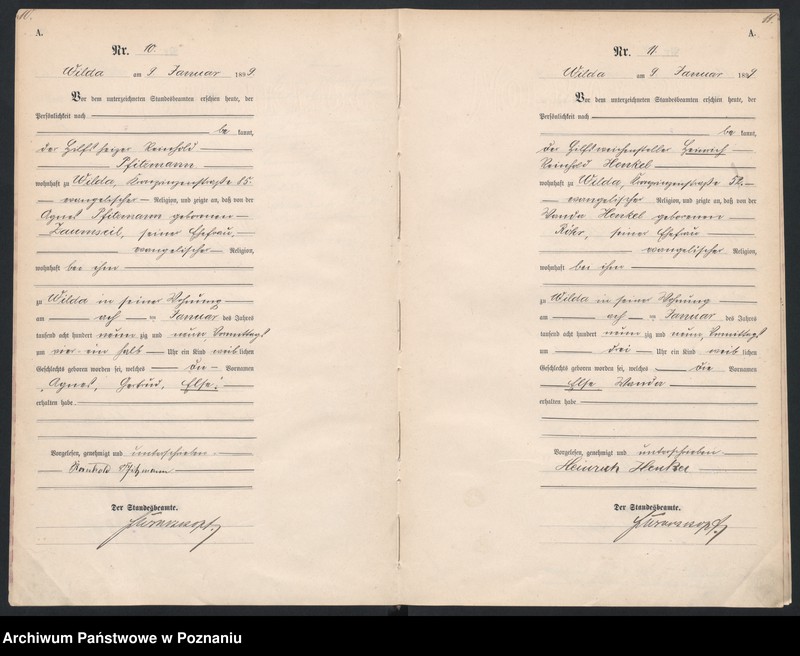 10.
A.
Nr. 10.
Wilda am 9 Januar 1899.
Vor dem unterzeichneten Standesbeamten erschien heute, der
Persönlichkeit nach
be kannt,
der Hilfsheizer Reinhold
wohnhaft zu Wilda, 15.
evangelischer Religion, und zeigte an, daß von der
Agnes geborenen
Zaumseil, seiner Ehefrau,
evangelischer Religion,
wohnhaft bei ihm
zu Wilda in seiner Wohnung
am acht Januar des Jahres
tausend acht hundert neun zig und neun, Vormittags
um vier ein halb Uhr ein Kind weib lichen
Geschlechts geboren worden sei, welches die Vornamen
Agnes, Gertrud, Else
erhalten habe.
Vorgelesen, genehmigt und unterschrieben
Reinhold
Der Standesbeamte.
11.
A.
Nr. 11.
Wilda am 9 Januar 1899.
Vor dem unterzeichneten Standesbeamten erschien heute, der
Persönlichkeit nach
be kannt,
der Hilfsweichensteller Heinrich
Reinhold Henkel
wohnhaft zu Wilda, 52,
evangelischer Religion, und zeigte an, daß von der
Wanda Henkel geborenen
Röhr, seiner Ehefrau
evangelischer Religion,
wohnhaft bei ihm
zu Wilda in seiner Wohnung
am acht Januar des Jahres
tausend acht hundert neun zig und neun, Vormittags
um drei Uhr ein Kind weib lichen
Geschlechts geboren worden sei, welches die Vornamen
Else Wanda
erhalten habe
Vorgelesen, genehmigt und unterschrieben
Heinrich Henkel
Der Standesbeamte.
Archiwum Państwowe w Poznaniu